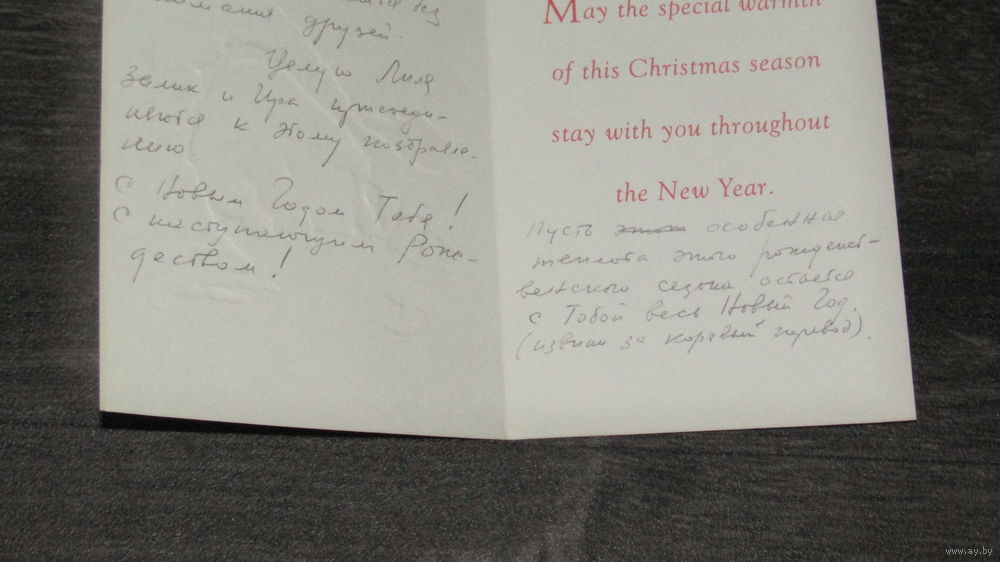 друзей.
Целую Лиля
и Ира присоеди-
няются к этому поздравле-
нию
С Новым Годом Тебя!
С наступающим Рож-
деством!
May the special warmth
of this Christmas season
stay with you throughout
the New Year.
Пусть особенная
теплота этого рождест-
венского сезона остаётся
с Тобой весь Новый Год.
(извини за корявый перевод).
www.ay.by